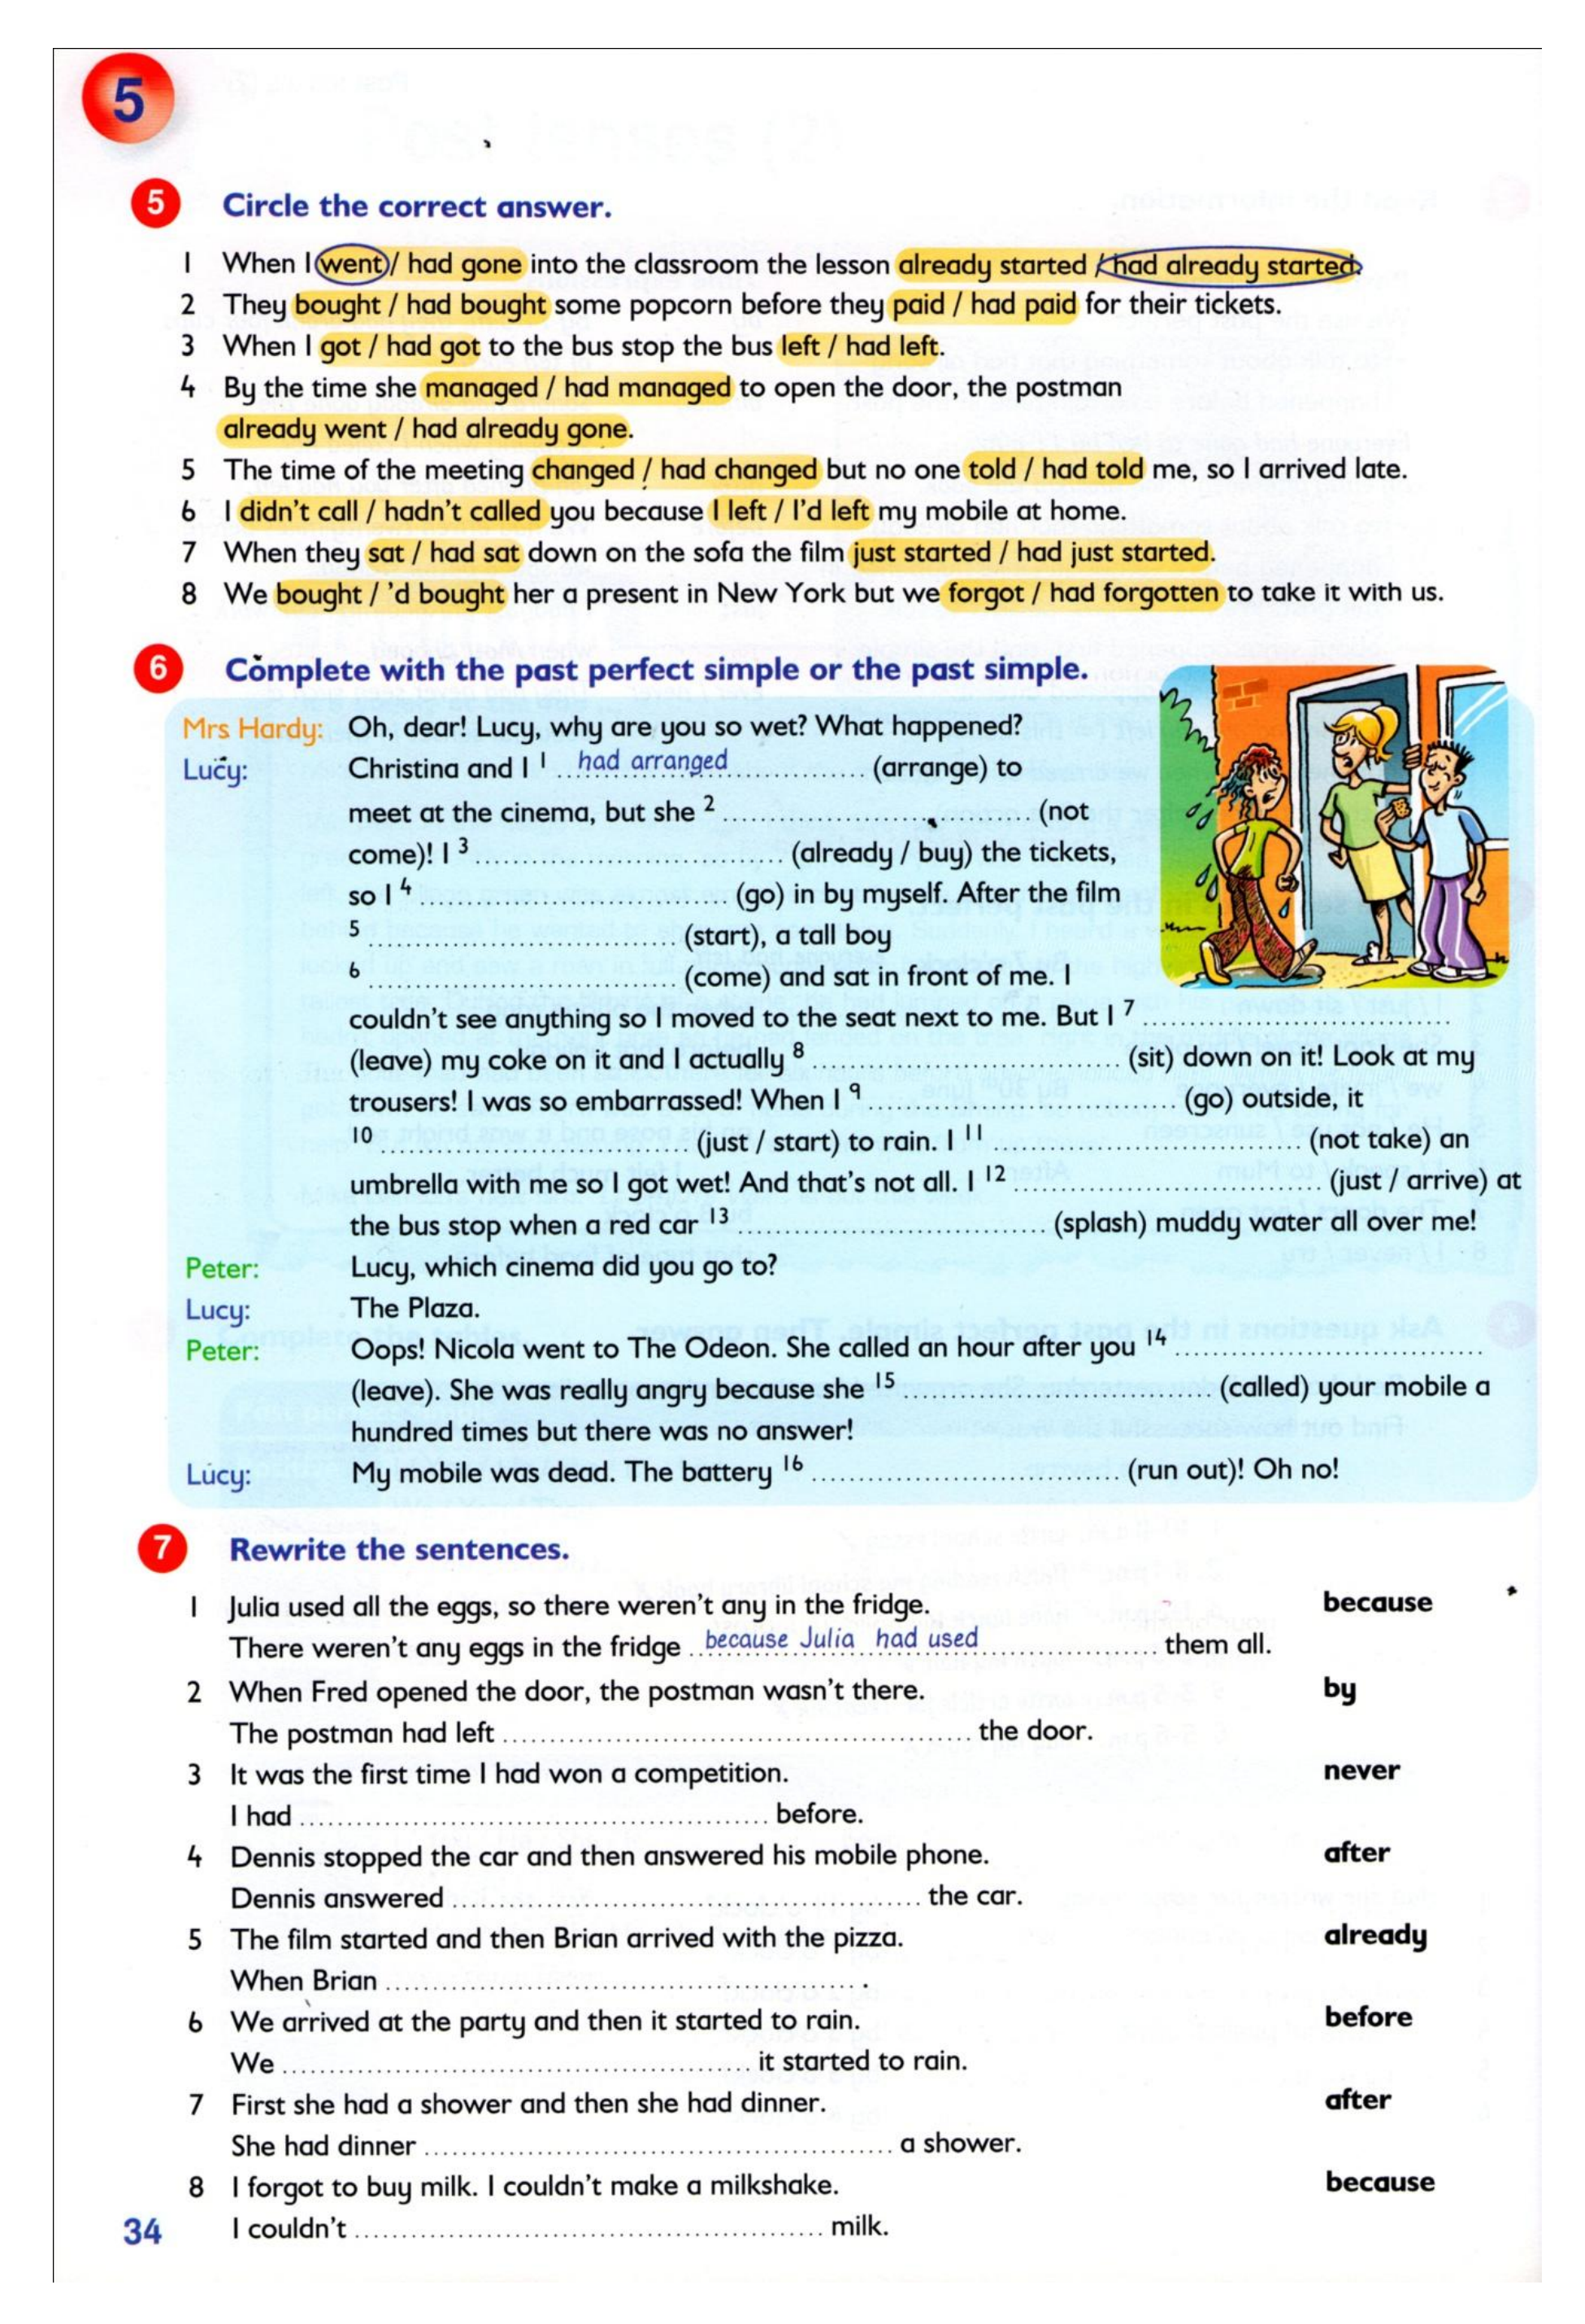 5
5 Circle the correct answer.
1 When I went / had gone into the classroom the lesson already started / had already started.
2 They bought / had bought some popcorn before they paid / had paid for their tickets.
3 When I got / had got to the bus stop the bus left / had left.
4 By the time she managed / had managed to open the door, the postman
already went / had already gone.
5 The time of the meeting changed / had changed but no one told / had told me, so I arrived late.
6 I didn't call / hadn't called you because I left / I'd left my mobile at home.
7 When they sat / had sat down on the sofa the film just started / had just started.
8 We bought / 'd bought her a present in New York but we forgot / had forgotten to take it with us.
6 Complete with the past perfect simple or the past simple.
Mrs Hardy: Oh, dear! Lucy, why are you so wet? What happened?
Lucy: Christina and I 1 ..had arranged.............. (arrange) to
meet at the cinema, but she 2 .............................. (not
come)! I 3 .............................. (already / buy) the tickets,
so I 4 .............................. (go) in by myself. After the film
5 .............................. (start), a tall boy
6 .............................. (come) and sat in front of me. I
couldn't see anything so I moved to the seat next to me. But I 7 ..............................
(leave) my coke on it and I actually 8 .............................. (sit) down on it! Look at my
trousers! I was so embarrassed! When I 9 .............................. (go) outside, it
10 .............................. (just / start) to rain. I 11 .............................. (not take) an
umbrella with me so I got wet! And that's not all. I 12 .............................. (just / arrive) at
the bus stop when a red car 13 .............................. (splash) muddy water all over me!
Peter: Lucy, which cinema did you go to?
Lucy: The Plaza.
Peter: Oops! Nicola went to The Odeon. She called an hour after you 14 ..............................
(leave). She was really angry because she 15 .............................. (called) your mobile a
hundred times but there was no answer!
Lucy: My mobile was dead. The battery 16 .............................. (run out)! Oh no!
7 Rewrite the sentences.
1 Julia used all the eggs, so there weren't any in the fridge. because
There weren't any eggs in the fridge ..because Julia had used.................. them all.
2 When Fred opened the door, the postman wasn't there. by
The postman had left .............................................. the door.
3 It was the first time I had won a competition. never
I had .............................................. before.
4 Dennis stopped the car and then answered his mobile phone. after
Dennis answered .............................................. the car.
5 The film started and then Brian arrived with the pizza. already
When Brian .............................................. .
6 We arrived at the party and then it started to rain. before
We .............................................. it started to rain.
7 First she had a shower and then she had dinner. after
She had dinner .............................................. a shower.
8 I forgot to buy milk. I couldn't make a milkshake. because
I couldn't .............................................. milk.
34